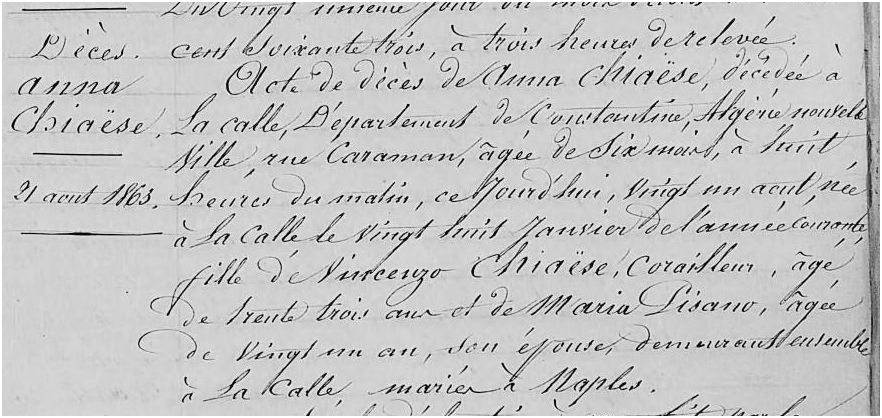 Du Vingt unième jour du mois
Décès.
anna
Chiaëse.
21 aout 1863.
cent soixante trois, à trois heures de relevée.
Acte de décès de Anna Chiaëse, décédée à
La calle, Département de Constantine, Algérie nouvelle
Ville, rue Caraman, âgée de Six mois, à huit
heures du matin, ce Jourd'hui, vingt un aout, née
à La Calle le Vingt huit Janvier de l'année courante,
fille de Vincenzo Chiaëse, Corailleur, âgé
de trente trois ans et de Maria Pisano, âgée
de vingt un an, son épouse, demeurant ensemble
à La Calle, mariés à Naples.